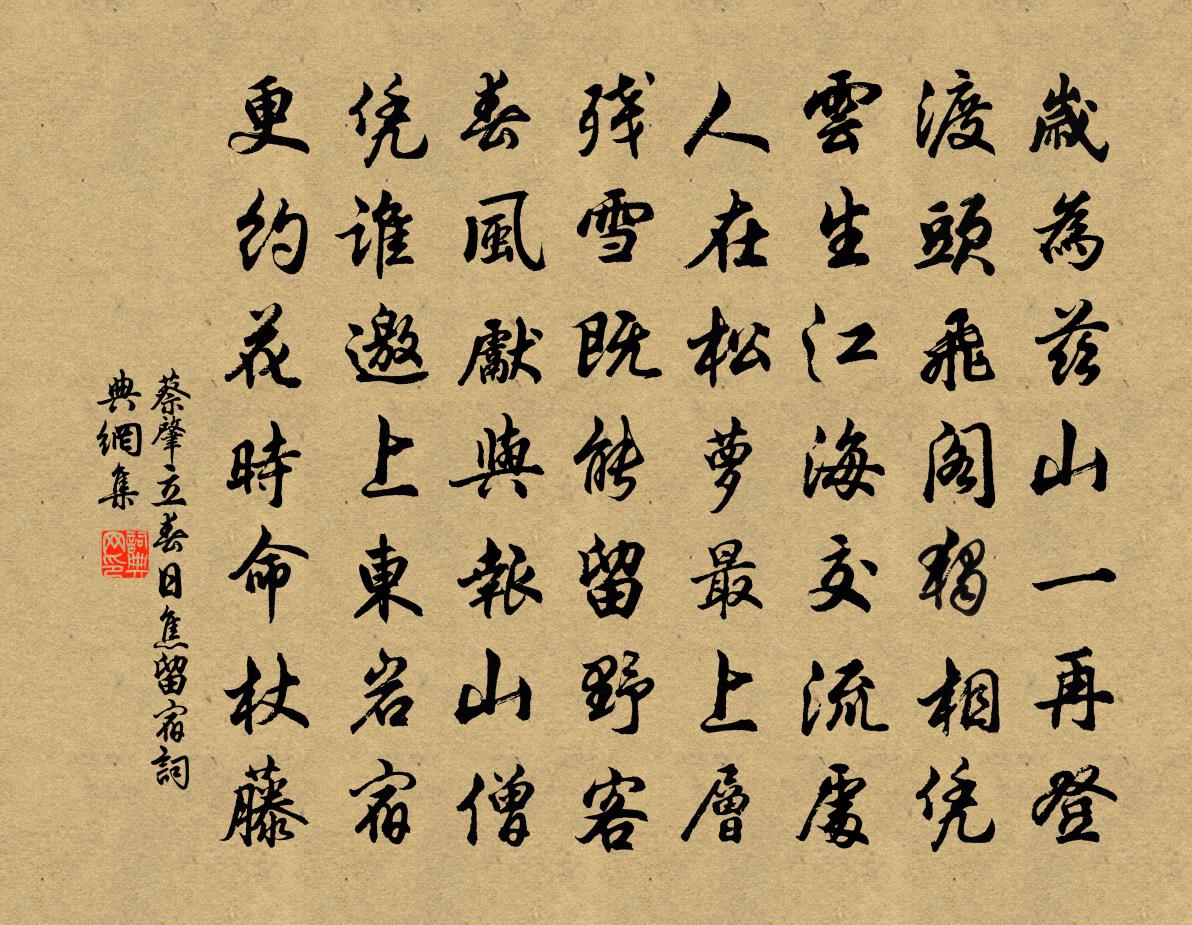 歲為茲山一再登
渡頭飛閣獨相凭
雲生江海交流處
人在松萝最上層
残雪既能留野客
春風獻與報山僧
凭谁邀上東岩宿
更约花時命杖藤
蔡肇立春日焦留宿詞
典網集
詞典
网印